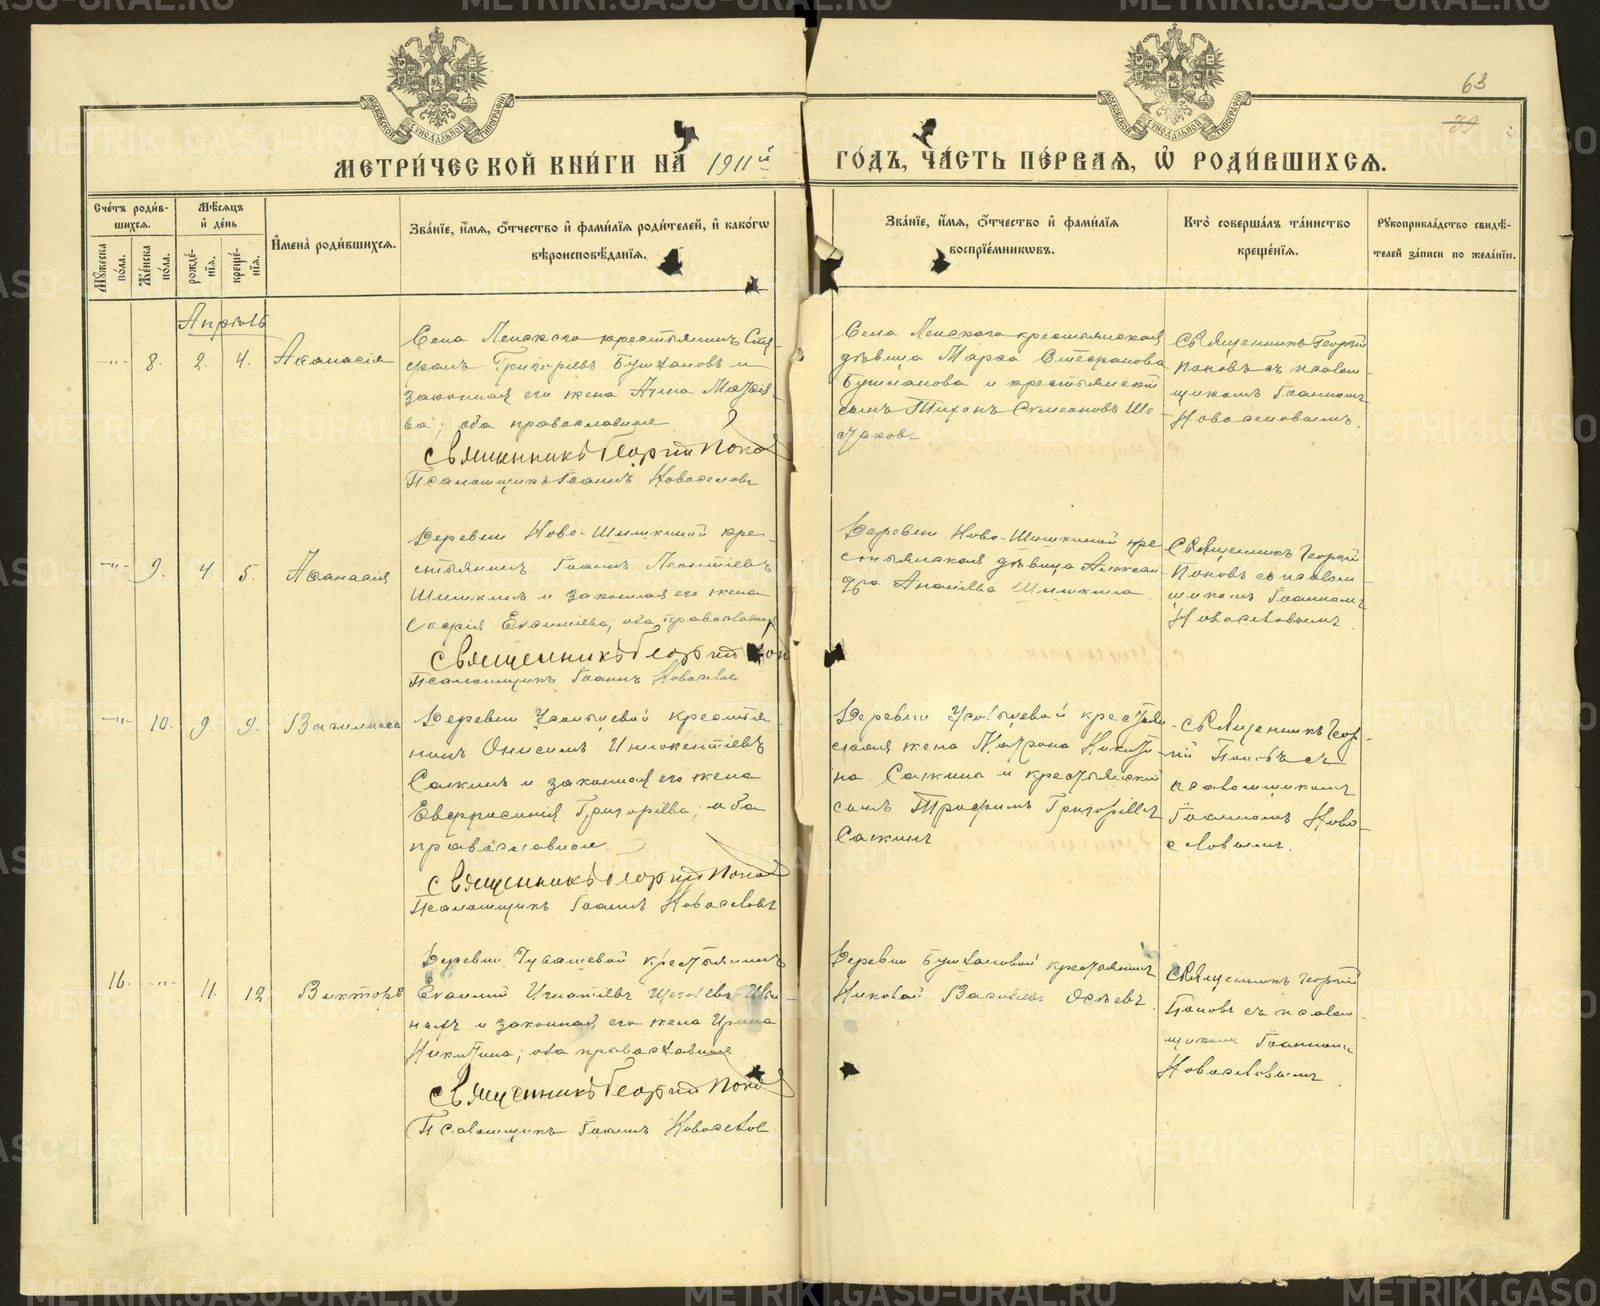 63
39
МЕТРИ́ЧЕСКОЙ КНИ́ГИ НА 1911й ГО́ДЪ, ЧА́СТЬ ПЕ́РВАЯ, Ѡ РОДИ́ВШИХСЯ.
МОСКОВСКОЙ СѴНОДАЛЬНОЙ ТИПОГРАФІИ
МОСКОВСКОЙ СѴНОДАЛЬНОЙ ТИПОГРАФІИ
Сче́тъ роди́вшихся.
Му́жеска по́ла.
Же́нска по́ла.
Мѣ́сяцъ и де́нь
рожде́нія.
креще́нія.
И҆мена̀ роди́вшихся.
Зва́ніе, и҆́мя, ѻ҆́тчество и҆ фами́лія роди́телей, и҆ како́гѡ вѣроисповѣ́данія.
Зва́ніе, и҆́мя, ѻ҆́тчество и҆ фами́лія воспріе́мниковъ.
Кто̀ соверша́лъ та́инство креще́нія.
Рꙋкоприкла́дство свидѣ́телей за́писи по жела́нію.
Апрѣль
-"- 8. 2. 4. Аѳанасія
Села Ленскаго крестьянинъ Сте
фанъ Григоріевъ Бушлановъ и
законная его жена Анна
ва; оба православные
Священникъ Георгій Попов
Псаломщикъ Іоаннъ Новоселовъ
Села Ленскаго крестьянская
дѣвица Марѳа Стефанова
Бушланова и крестьянскій
сынъ Тихонъ Симеоновъ Ше
Священникъ Георгій
Поповъ съ псалом-
щикомъ Іоанномъ
Новоселовымъ.
-"- 9. 4. 5. Аѳанасія
Деревни Ново-Шишкиной кре-
стьянинъ Іоаннъ Леонтіевъ
Шишкинъ и законная его жена
Софія Евѳиміева; оба православные
Священникъ Георгій Поп
Псаломщикъ Іоаннъ Новоселов
Деревни Ново-Шишкиной кре
стьянская дѣвица Алексан
дра Ананіева Шишкина.
Священникъ Георгій
Поповъ съ псалом
щикомъ Іоанномъ
Новоселовымъ.
-"- 10. 9. 9. Василисса
Деревни крестья-
нинъ Онисимъ Иннокентіевъ
Сажинъ и законная его жена
Евфросинія Григоріева; оба
православные.
Священникъ Георгій Попов
Псаломщикъ Іоаннъ Новоселовъ
Деревни крестьян
ская жена Матрона Никити
на Сажина и крестьянскій
сынъ Трофимъ Григоріевъ
Сажинъ
Священникъ Геор-
гій Поповъ съ
псаломщикомъ
Іоанномъ Ново-
селовымъ.
16. -"- 11. 12. Викторъ
Деревни Чувашевой крестьянинъ
Евѳимій Игнатіевъ
и законная его жена Ирина
Никитина; оба православные.
Священникъ Георгій Попов
Псаломщикъ Іоаннъ Новоселов
Деревни Бушлановой крестьянинъ
Николай Васильевъ
Священникъ Георгій
Поповъ съ псалом-
щикомъ Іоанномъ
Новоселовымъ.
METRIKI.GASO-URAL.RU